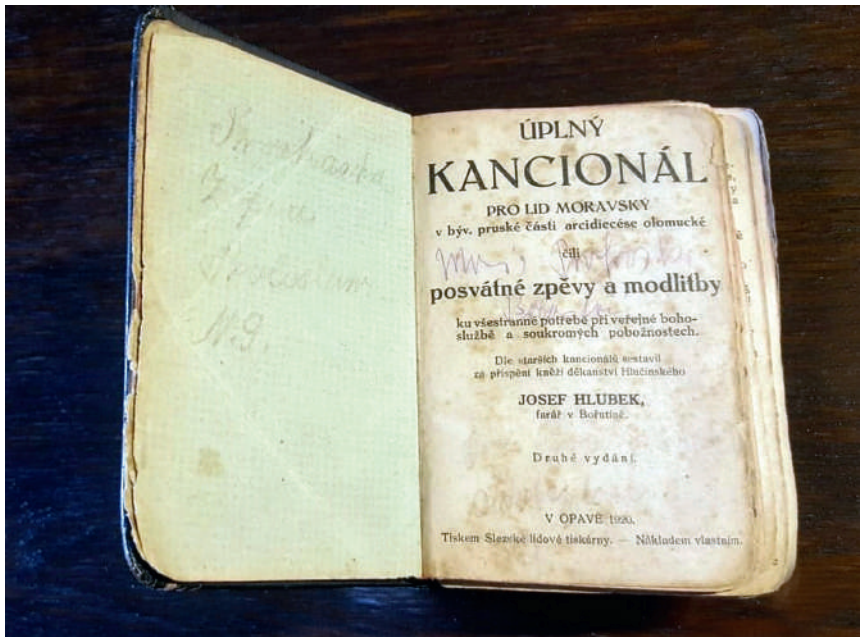 ÚPLNÝ
KANCIONÁL
PRO LID MORAVSKÝ
v býv. pruské části arcidiecése olomucké
čili
posvátné zpěvy a modlitby
ku všestranné potřebě při veřejné boho-
službě a soukromých pobožnostech.
Dle starších kancionálů sestavil
za přispění kněží děkanství Hlučínského
JOSEF HLUBEK,
farář v Bořutíně.
Druhé vydání.
V OPAVĚ 1920.
Tiskem Slezské lidové tiskárny. — Nákladem vlastním.